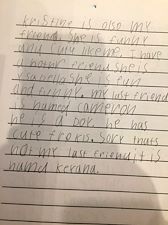 kristine is also my
friend. She is funny
and cute like me. I have
a nother friend she is
ysabell she is fun
and funny. my last friend
is named cameron
he is a boy. he has
cute frekls. Sory thats
not my last friend it is
named kerana.